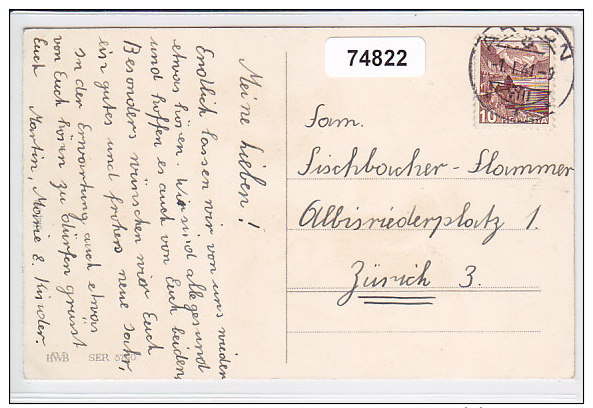 74822
10
HELVETIA
Meine Lieben!
Endlich lassen wir von uns wieder
etwas hören. Wir sind alle gesund
und hoffen es auch von Euch beiden,
Besonders wünschen wir Euch
ein gutes und frohes neue Jahr,
In der Erwartung auch etwas
von Euch hören zu dürfen grüsst
Euch Martin, Marie & Kinder.
HWB SER
Fam.
Fischbacher-Stammer
Albisriederplatz 1.
Zürich 3.